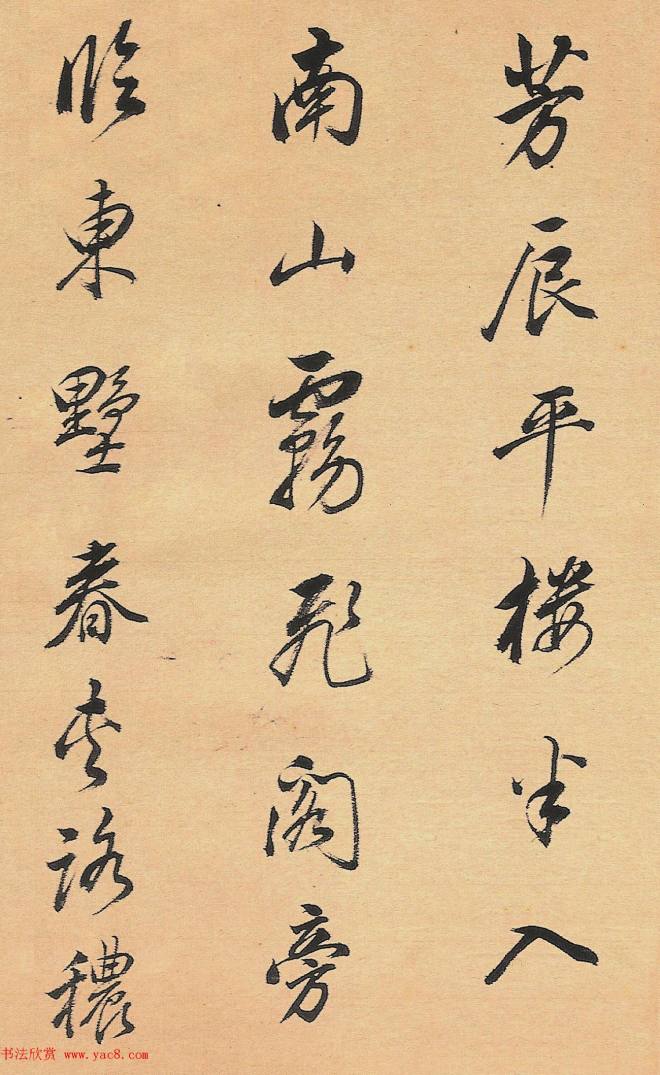 芳辰平楼半入
南山霧飛閣旁
臨東墅春夾路穠
书法欣赏 www.yac8.com